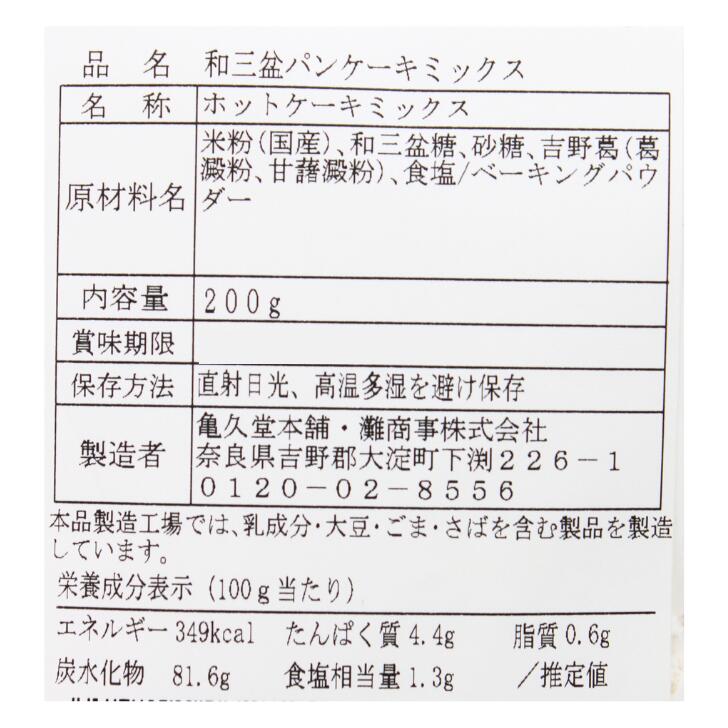 品名 和三盆パンケーキミックス
名称 ホットケーキミックス
原材料名 米粉(国産)、和三盆糖、砂糖、吉野葛(葛
澱粉、甘藷澱粉)、食塩/ベーキングパウ
ダー
内容量 200g
賞味期限
保存方法 直射日光、高温多湿を避け保存
製造者 亀久堂本舗・灘商事株式会社
奈良県吉野郡大淀町下渕226-1
0120-02-8556
本品製造工場では、乳成分・大豆・ごま・さばを含む製品を製造
しています。
栄養成分表示(100g当たり)
エネルギー349kcal たんぱく質4.4g 脂質0.6g
炭水化物 81.6g 食塩相当量1.3g /推定値